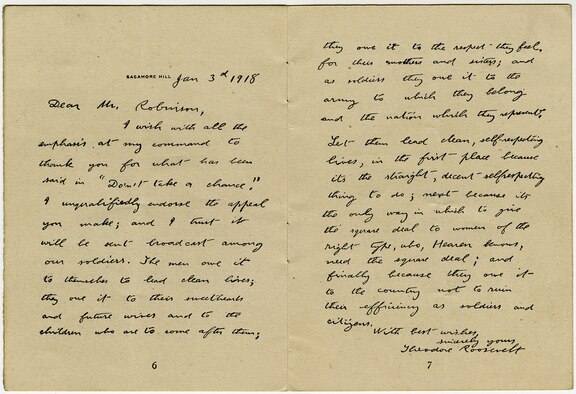 SAGAMORE HILL Jan 3rd 1918
Dear Mr. Robinson,
I wish with all the
emphasis at my command to
thank you for what has been
said in "Don't take a chance."
I unqualifiedly endorse the appeal
you make; and I trust it
will be sent broadcast among
our soldiers. The men owe it
to themselves to lead clean lives;
they owe it to their sweethearts
and future wives and to the
children who are to come after them;
6
they owe it to the respect they feel
for their mothers and sisters; and
as soldiers they owe it to the
army to which they belong
and the nation which they represent.
Let them lead clean, self respecting
lives, in the first place because
its the straight, decent self respecting
thing to do; next because its
the only way in which to give
the square deal to women of the
right type, who, Heaven knows,
need the square deal; and
finally because they owe it
to the country not to ruin
their efficiency as soldiers and
citizens.
With best wishes,
sincerely yours,
Theodore Roosevelt
7